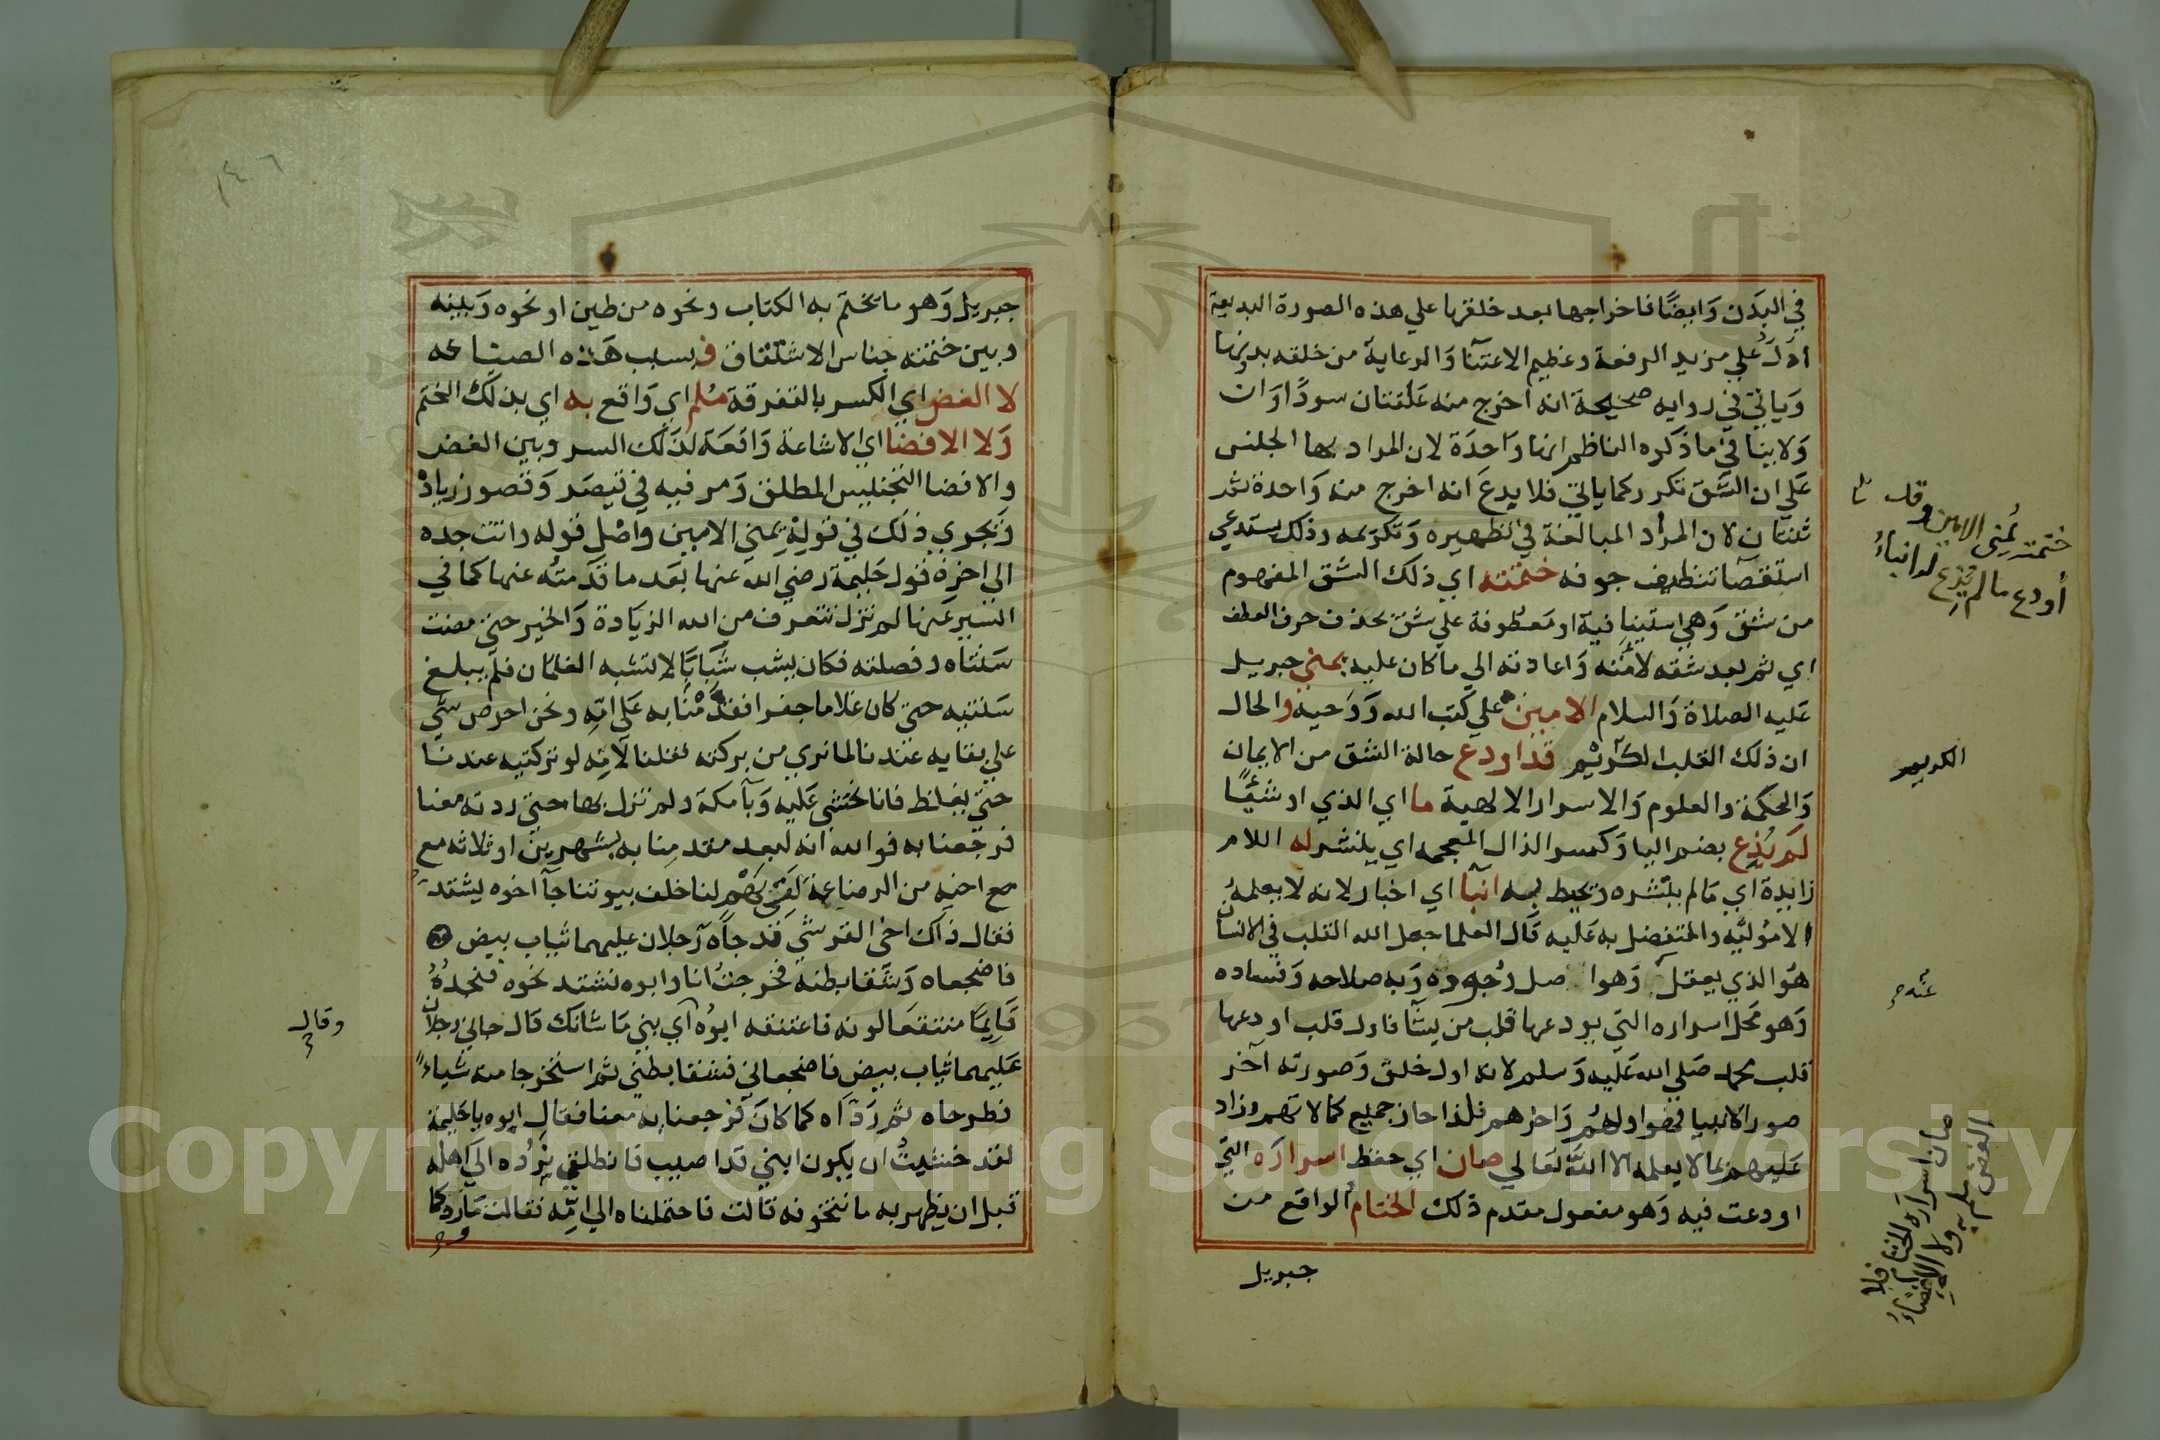 في البدن وايضًا فاخراجها بعد خلقها علي هذه الصورة البديعة
ادل علي مزيد الرفعة وعظيم الاعتنا والرعاية من خلقه بدونها
وياتي في روايه صحيحة انه اخرج منه علقتان سوداوان
ولا ينافي ما ذكره الناظم انها واحدة لان المراد بها الجنس
علي ان الشق تكرر كما ياتي فلا يدع انه اخرج منه واحدة ثم
ثنتان لان المراد المبالغة في تطهيره وتكريمه وذلك يستدعي
استقصا تنظيف جوفه ختمته اي ذلك الشق المفهوم
من شق وهي استينافية او معطوفة علي شق بحذف حرف العطف
اي ثم بعد شقه لأمته واعادته الي ما كان عليه يمني جبريل
عليه الصلاة والسلام الامين علي كتب الله ووحيه والحال
ان ذلك القلب الكريم قد اودع حالة الشق من الايمان
والحكمة والعلوم والاسرار الالهية ما اي الذي او شيئًا
لم يُذِع بضم اليا وكسر الذال المعجمه اي ينشر له اللام
زايدة اي مالم ينشره ويحيط به انبا اي اخبار لانه لا يعلمه
الا موليه والمتفضل به عليه قال العلما جعل الله القلب في الانسان
هو الذي يعقل وهو اصل وجوده وبه صلاحه وفساده
وهو محل اسراره التي يودعها قلب من يشا فاول قلب اودعها
قلب محمد صلي الله عليه وسلم لانه اول خلق وصورته آخر
صور الانبيا فهو اولهم واخرهم فلذا حاز جميع كمالاتهم وزاد
عليهم بما لا يعلمه الا الله تعالي صان اي حفظ اسراره التي
اودعت فيه وهو مفعول مقدم ذلك الختام الواقع من
جبريل
ختمته يُمنى الامين وقد
أودع ما لم يُذِع له انباءُ
الكريم
عنه
صان اسراره الختام فلا
الفض ملم به ولا الافضاءُ
١٤٦
جبريل وهو ما يختم به الكتاب ونحوه من طين او نحوه وبينه
وبين ختمته جناس الاشتقاق فـ بسبب هذه الصناعه
لا الفض اي الكسر بالتفرقة مُلم اي واقع به اي بذلك الختم
ولا الافضا اي الاشاعة واقعة لذلك السر وبين الفض
والافضا التجنيس المطلق ومر فيه في قيصر وقصور زيادة
ويجري ذلك في قوله يمني الامين واصل قوله واتت جده
الي اخره قول حليمة رضي الله عنها بعد ما قدمته عنها كما في
السير عنها لم نزل نتعرف من الله الزيادة والخير حتي مضت
سنتاه وفصلته فكان يشب شبابا لا تشبه الغلمان فلم يبلغ
سنتيه حتي كان غلاما جفرا فقدمنا به علي امه ونحن احرص شي
علي بقايه عندنا لما نري من بركته فقلنا لامه لو تركتيه عندنا
حتي يغلظ فانا نخشي عليه وبا مكة ولم نزل بها حتي ردته معنا
فرجعنا به فوالله انه لبعد مقدمنا به بشهرين او ثلاثه مع
مع اخيه من الرضاعة لفي بَهْم لنا خلف بيوتنا جآ اخوه يشتد
فقال ذاك اخي القرشي قد جاه رجلان عليهما ثياب بيض
فاضجعاه وشقا بطنه فخرجتُ انا وابوه نشتد نحوه فنجدُهُ
قايمًا منتقعا لونه فاعتنقه ابوه اي بني ما شانك قال جاني رجلان
عليهما ثياب بيض فاضجعاني فشقا بطني ثم استخرجا منه شياءً
فطرحاه ثم رداه كما كان فرجعنا به معنا فقال ابوه يا حليمة
لقد خشيتُ ان يكون ابني قد اصيب فانطلقي نرده الي اهله
قبل ان يظهر به ما نتخوفه قالت فاحتملناه الي امه فقالت ما ردكما
وقال
Copyright © King Saud University
1957